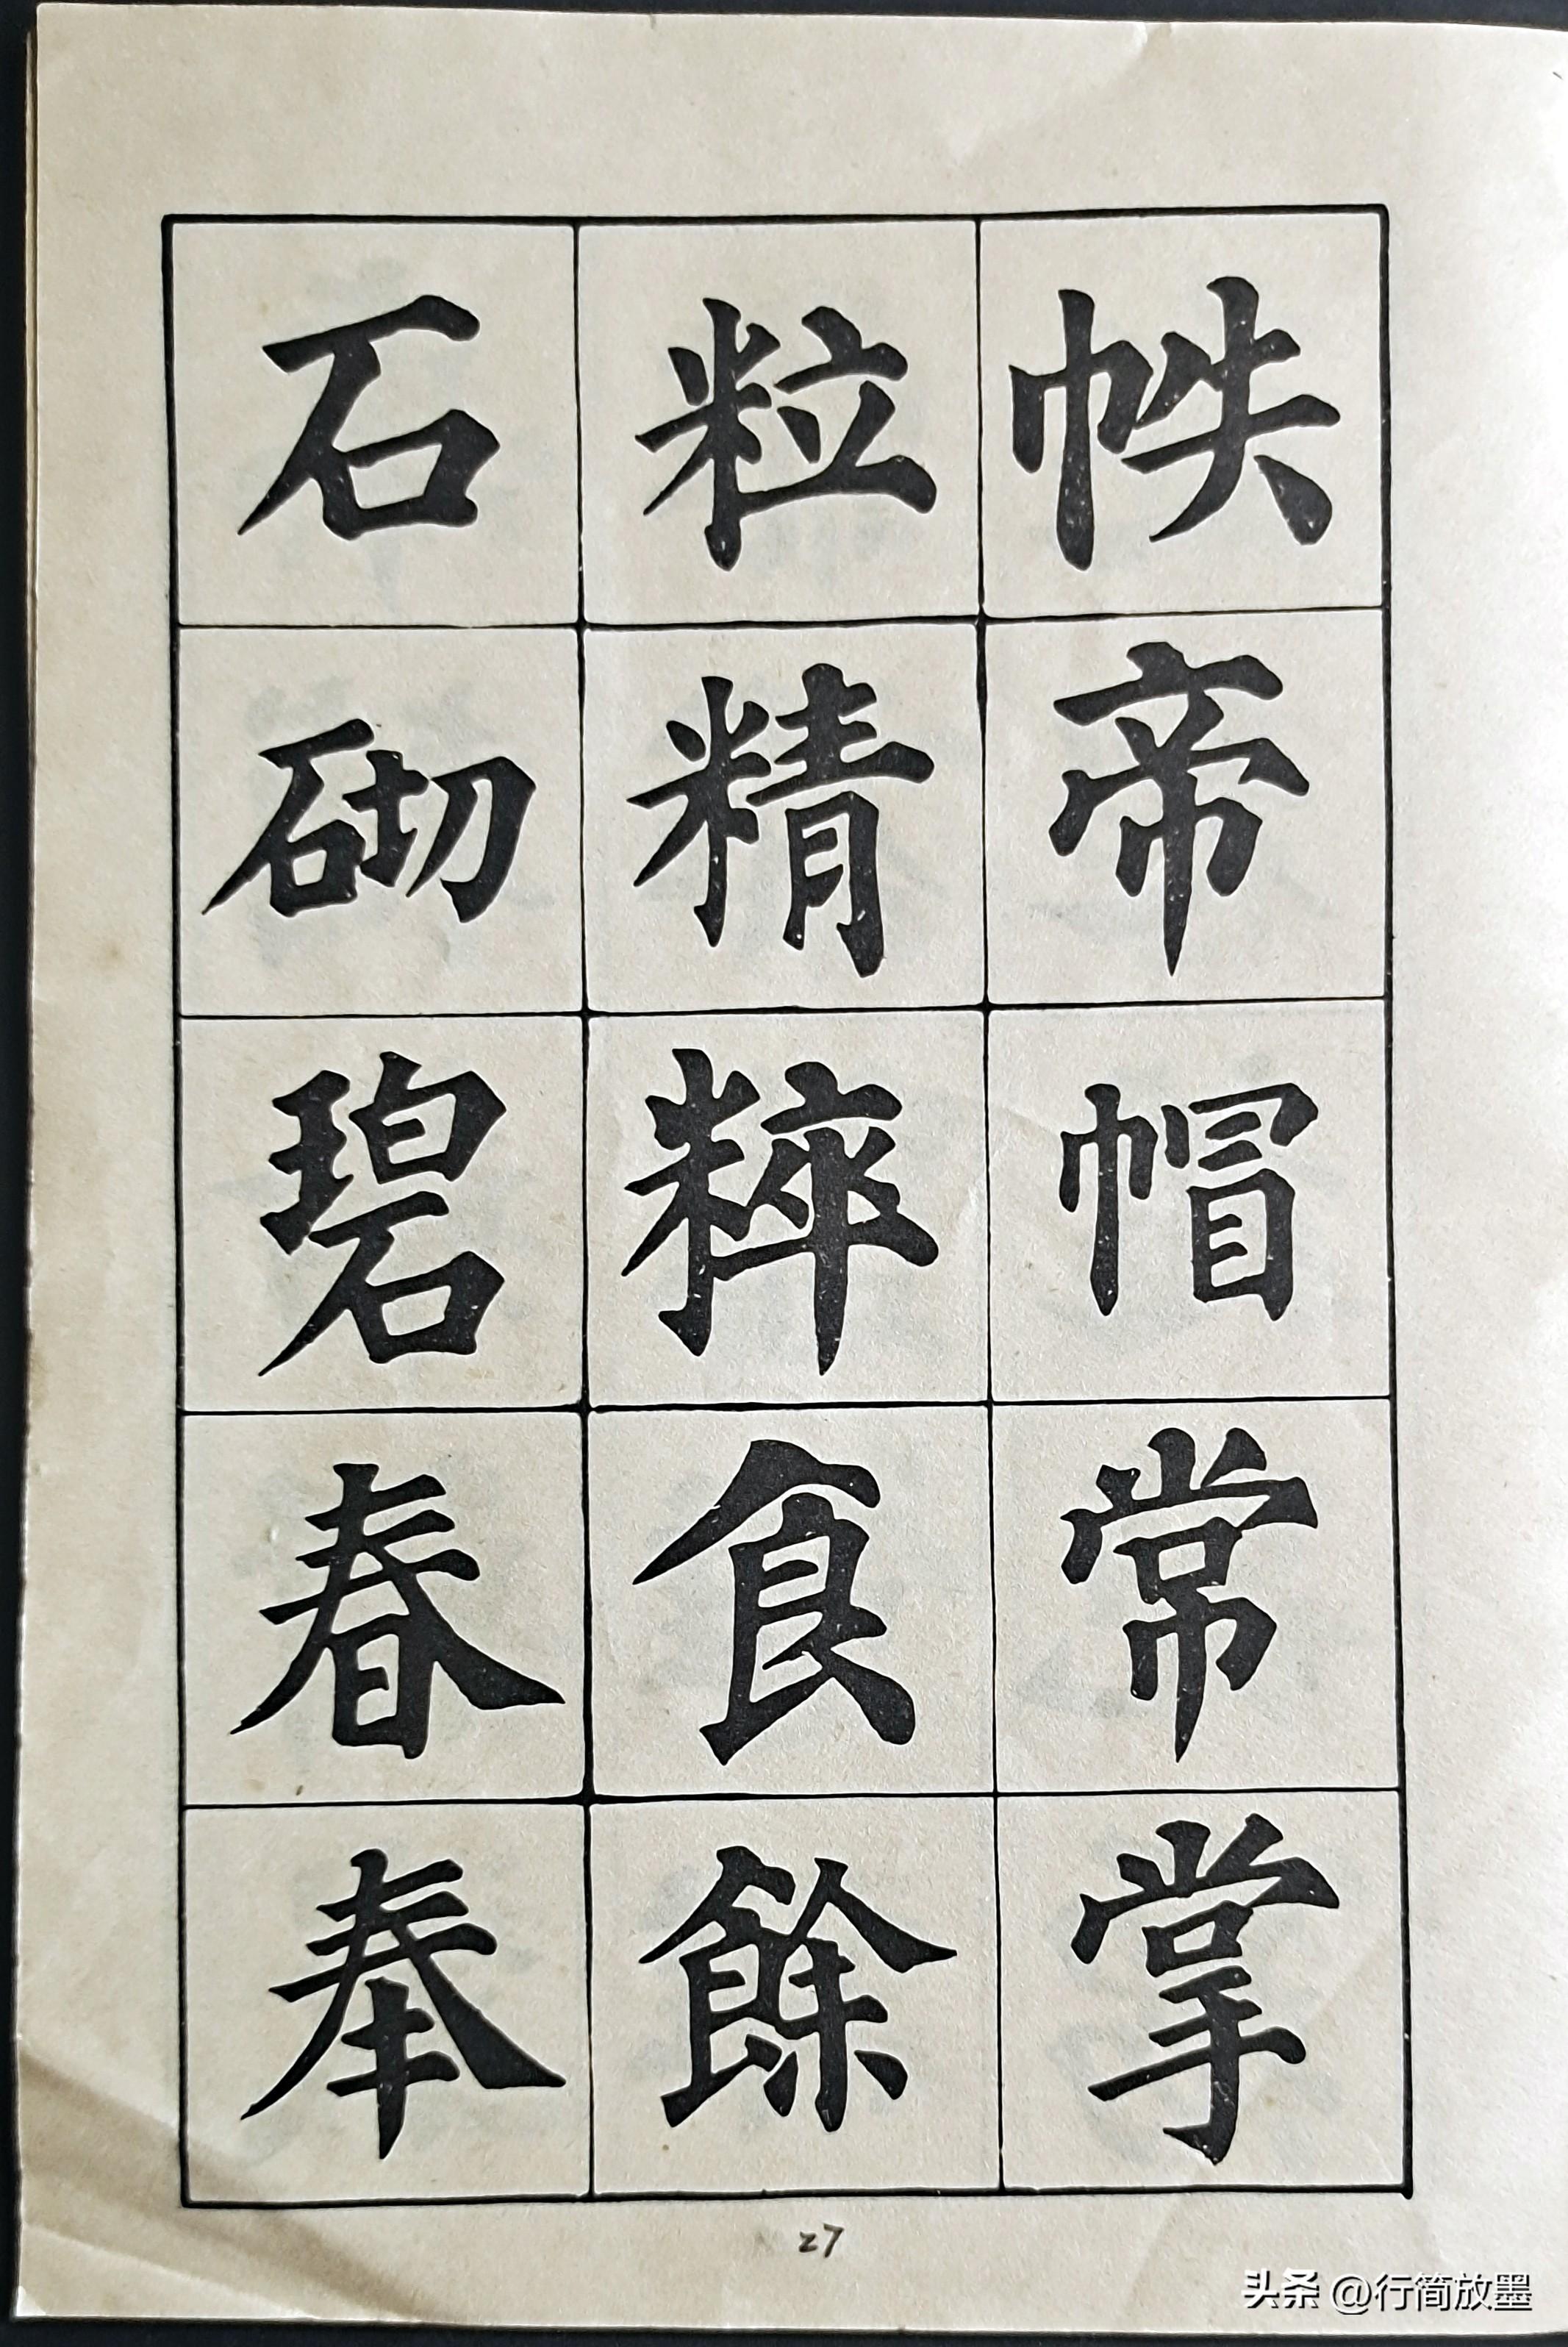 帙帝帽常掌
粒精粹食餘
石砌碧春奉
27
头条 @行简放墨